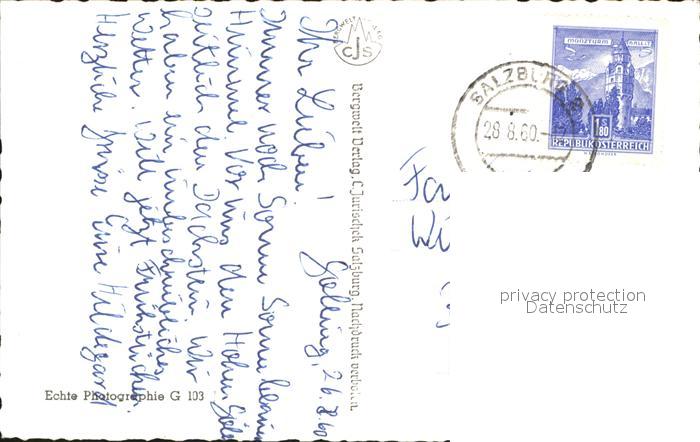 Golling, 26.8.60
Ihr Lieben!
Immer noch Sonne Sonne blauer
Himmel. Vor uns den Hohen Göll
seitlich den Dachstein. Wir
haben ein unbeschreibliches
Wetter. Will jetzt Frühstücken.
Herzliche Grüsse Eure Hildegard
BERGWELT VERLAG
CJS
Bergwelt Verlag, C. Jurischek Salzburg. Nachdruck verboten.
Echte Photographie G 103
SALZBURG
28.8.60.
MÜNZTURM HALL I. T.
1 S 80
REPUBLIK ÖSTERREICH
Fa
Wi
privacy protection
Datenschutz